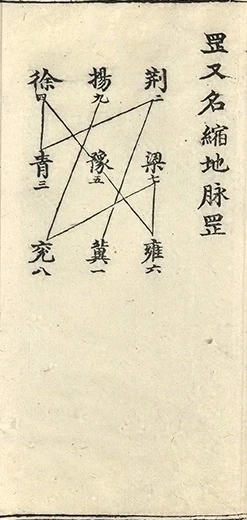 罡又名縮地脉罡
荆二 梁七 雍六
揚九 豫五 冀一
徐四 青三 兖八